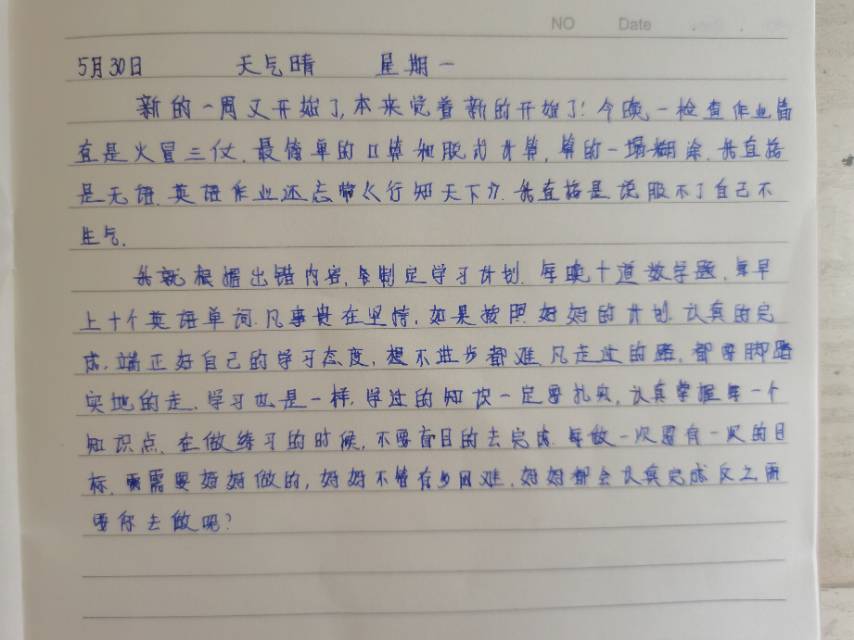 NO Date
5月30日 天气晴 星期一
新的一周又开始了,本来觉着新的开始了!今晚一检查作业简
直是火冒三仗.最简单的口算和脱式计算,算的一塌糊涂.我直接
是无语.英语作业还忘带 行知天下 .我直接是说服不了自己不
生气.
我就根据出错内容, 制定学习计划.每晚十道数学题,每早
上十个英语单词.凡事贵在坚持,如果按照好好的计划.认真的完
成.端正好自己的学习态度,想不进步都难.凡走过的路,都要脚踏
实地的走.学习也是一样.学过的知识一定要扎实,认真掌握每一个
知识点.在做练习的时候,不要盲目的去完成.每做一次要有一次的目
标. 需要好好做的,好好不管有多困难.好好都会认真完成反之需
要你去做呢?